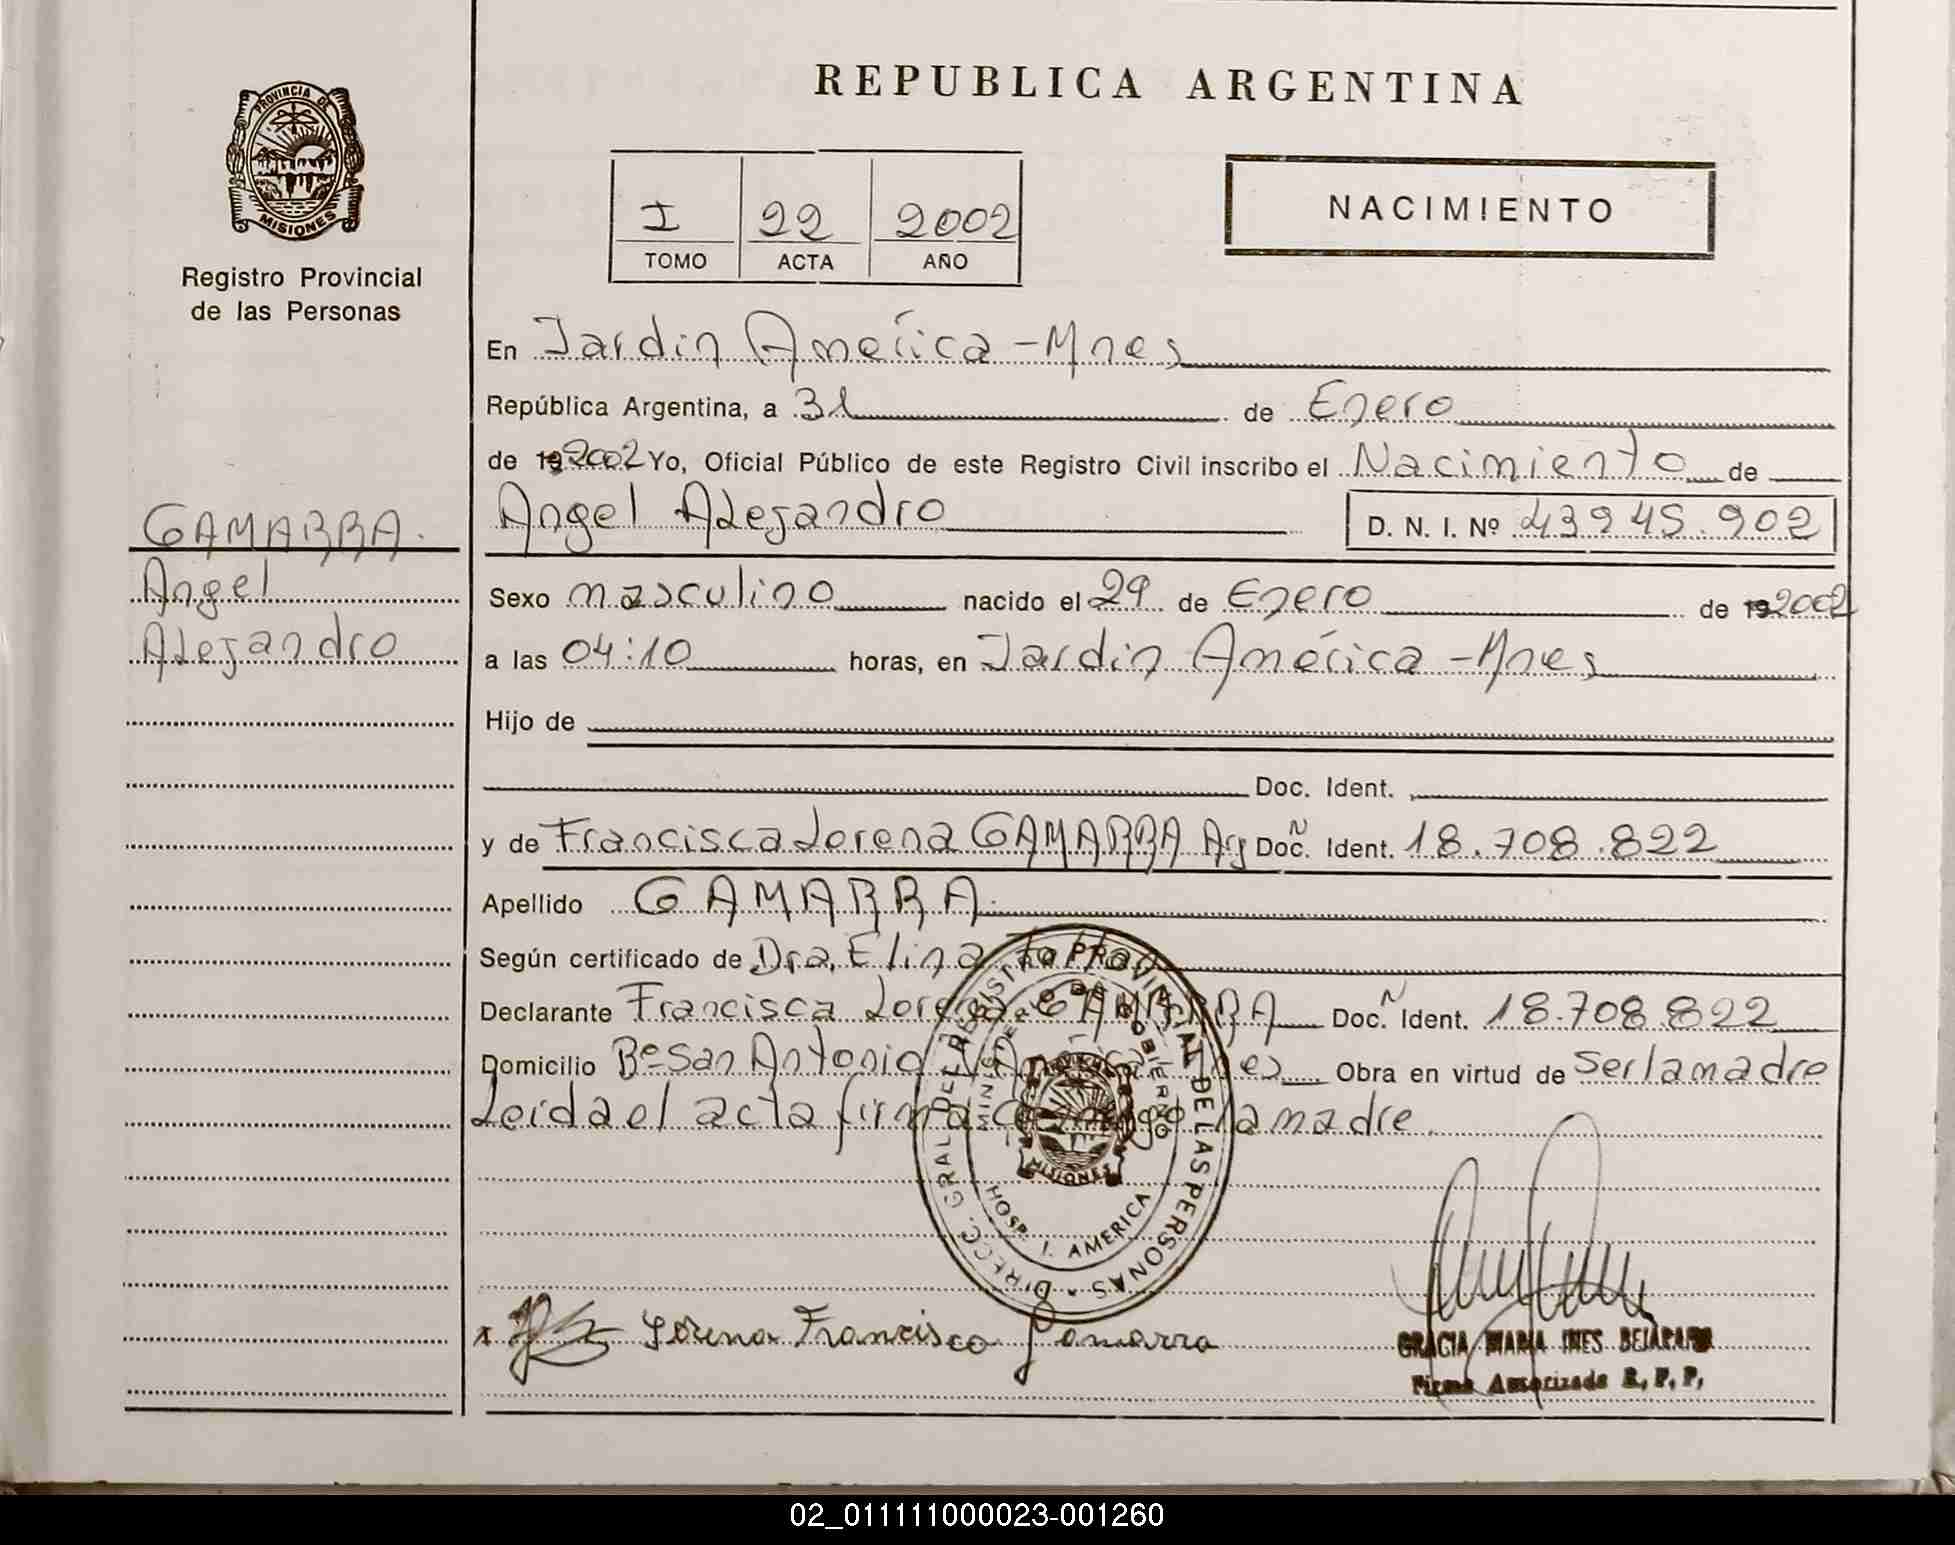 REPUBLICA ARGENTINA
PROVINCIA DE
MISIONES
Registro Provincial
de las Personas
I 22 2002
TOMO ACTA AÑO
NACIMIENTO
En Jardin América - Mnes
República Argentina, a 31 de Enero
de 19 2002 Yo, Oficial Público de este Registro Civil inscribo el Nacimiento de
Angel Alejandro D. N. I. Nº 43945.902
GAMARRA.
Angel
Alejandro
Sexo masculino nacido el 29 de Enero de 19 2002
a las 04:10 horas, en Jardin América - Mnes
Hijo de
Doc. Ident.
y de Francisca Lorena GAMARRA Arg Doc. Ñ Ident. 18.708.822
Apellido GAMARRA.
Según certificado de Dra. Elina
Declarante Francisca Lorena GAMARRA Doc. Ñ Ident. 18.708.822
Domicilio Bº San Antonio J América Mnes Obra en virtud de ser la madre
Leida el acta firma conmigo la madre.
DIRECC. GRAL DEL REGISTRO PROVINCIAL DE LAS PERSONAS
MINIST. DE GOBIERNO
HOSP. J. AMERICA
MISIONES
x Lorena Francisca Gamarra
GRACIA MARIA INES BEJARANO
Firma Autorizada R. P. P.
02_011111000023-001260